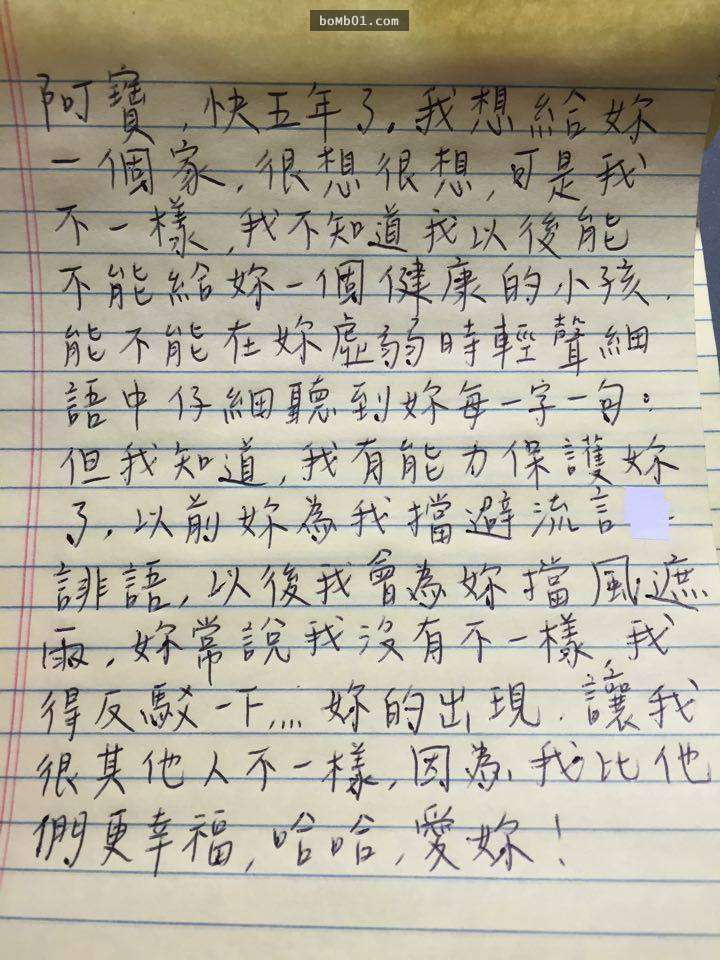 boMb01.com
阿寶，快五年了。我想給妳
一個家，很想很想，可是我
不一樣，我不知道我以後能
不能給妳一個健康的小孩，
能不能在妳虛弱時輕聲細
語中仔細聽到妳每一字一句；
但我知道，我有能力保護妳
了，以前妳為我擋避流言
誹語，以後我會為妳擋風遮
雨，妳常說我沒有不一樣，我
得反駁一下…妳的出現，讓我
很其他人不一樣，因為，我比他
們更幸福，哈哈，愛妳！